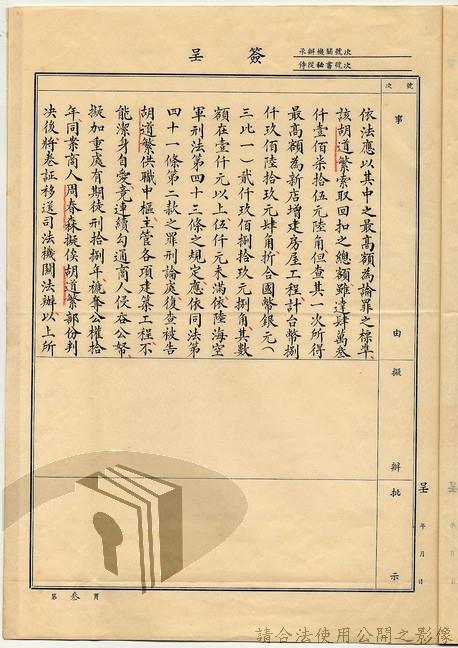 簽呈
承辦機關號次
侍從秘書號次
號次
事由
擬辦
批示
依法應以其中之最高額為論罪之標準、
該胡道繁索取回扣之總額雖達肆萬叁
仟壹佰柒拾伍元陸角、但查其一次所得
最高額為新店增建房屋工程、計台幣捌
仟玖佰陸拾玖元肆角折合國幣銀元(
三比一)貳仟玖佰捌拾玖元捌角、其數
額在壹仟元以上伍仟元未滿、依陸海空
軍刑法第四十三條之規定應依同法第
四十一條第二款之罪刑論處、復查被告
胡道繁供職中樞主管各項建築工程不
能潔身自愛、竟連續勾通商人侵吞公帑、
擬加重處有期徒刑拾捌年、褫奪公權拾
年、同案商人周春森擬俟胡道繁部份判
決後、將卷証移送司法機關法辦、以上所
呈 年 月 日
第叁頁
請合法使用公開之影像